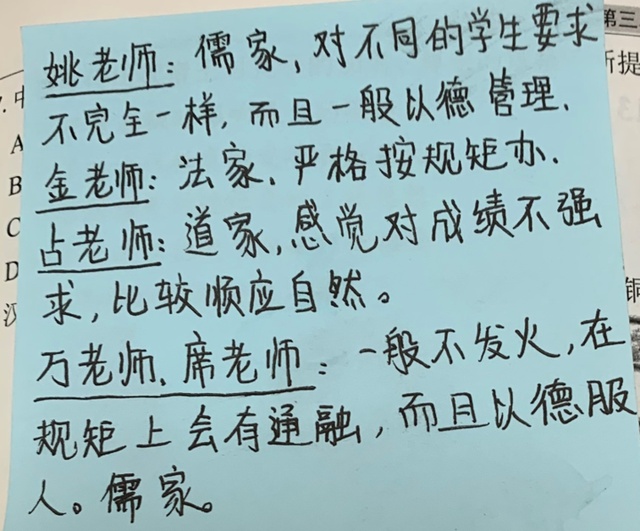 姚老师：儒家，对不同的学生要求
不完全一样，而且一般以德管理.
金老师：法家、严格按规矩办.
占老师：道家，感觉对成绩不强
求，比较顺应自然。
万老师、席老师：一般不发火，在
规矩上会有通融，而且以德服
人。儒家。
第三
A
B
C
D
所提